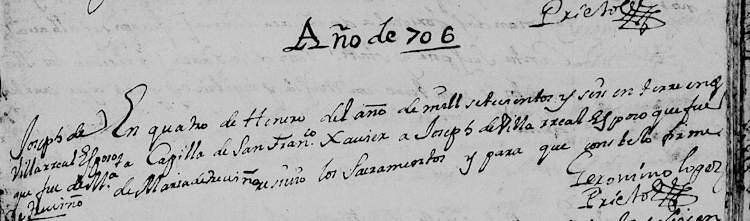 Prieto
Año de 706
Joseph de
Villarreal Esposo
que fue de Ma
de treviño
En quatro de Henero del año de mill setecientos y seis en terre en la
Capilla de San Franco Xavier a Joseph de Villarreal Esposo que fue
de Maria de treviño resivio los Sacramentos y para que conste lo firme
Geronimo lopez
Prieto